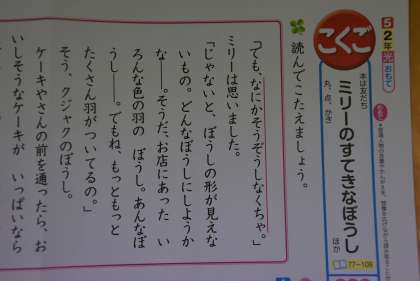 ５２年光おもて
こくご
本は友だち
ミリーのすてきなぼうし
丸、点、かぎ
ほか
77〜109
読んでこたえましょう。
「でも、なにかそうぞうしなくちゃ。」
ミリーは思いました。
「じゃないと、ぼうしの形が見えな
いもの。どんなぼうしにしようか
な――。そうだ、お店にあった　い
ろんな色の羽の　ぼうし。あんなぼ
うし――。でもね、もっともっと
たくさん羽がついてるの。」
そう、クジャクのぼうし。
ケーキやさんの前を通ったら、お
いしそうなケーキが　いっぱいなら